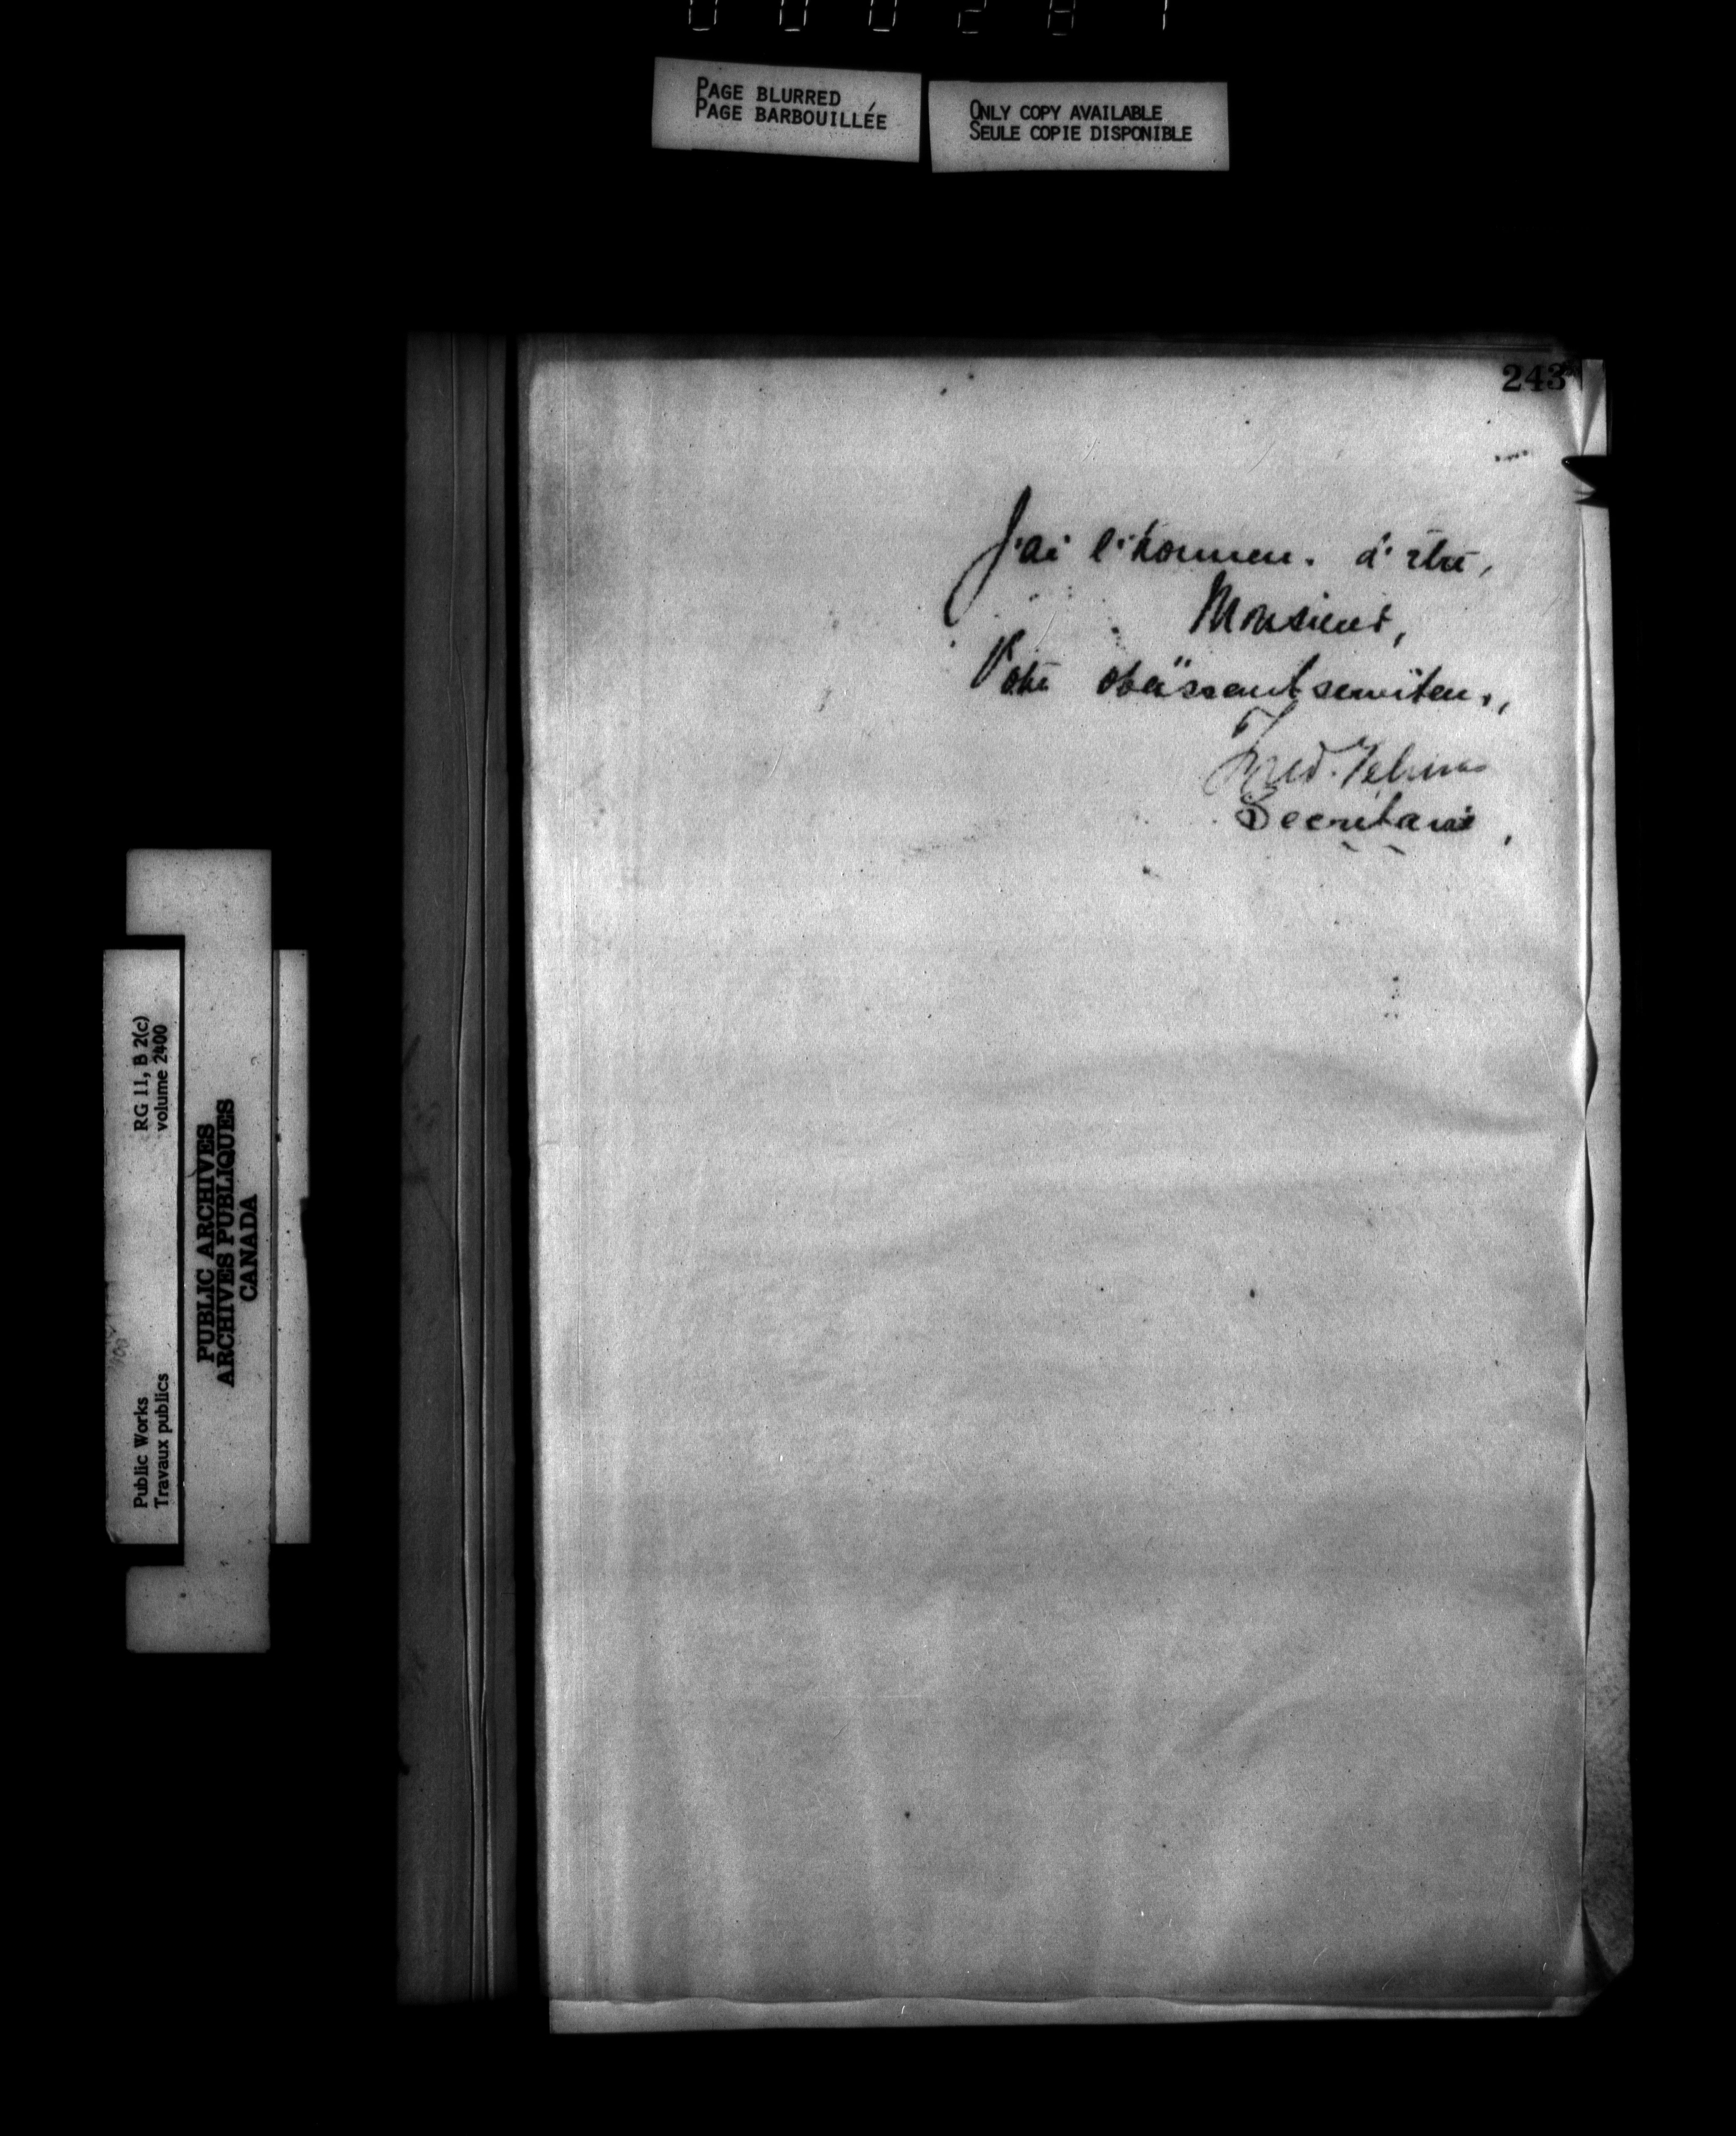 000281
PAGE BLURRED
PAGE BARBOUILLÉE
ONLY COPY AVAILABLE
SEULE COPIE DISPONIBLE
243
J'ai l'honneur d'être,
Monsieur,
Votre obéissant serviteur,
Fred. Gélinas
Secrétaire,
RG 11, B 2(c)
volume 2400
Public Works
Travaux publics
PUBLIC ARCHIVES
ARCHIVES PUBLIQUES
CANADA